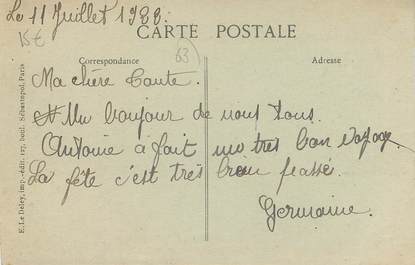 Le 11 Juillet 1922.
15€
CARTE POSTALE
63)
Correspondance
Adresse
Ma chère Tante.
Un bonjour de nous tous.
Antoine à fait un très bon voyage.
La fête c'est très bien passé.
Germaine.
E. Le Deley, imp.-édit. 127, boul. Sébastopol, Paris